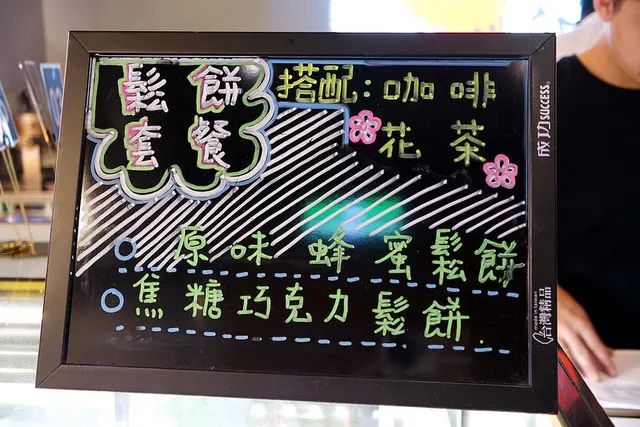 鬆餅
套餐
搭配：咖啡
花茶
原味蜂蜜鬆餅
焦糖巧克力鬆餅
成功SUCCESS®
made in taiwan
台灣精品